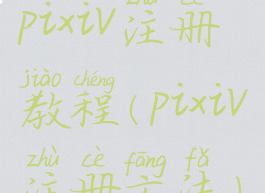 pixiv注册
jiào chéng
教程(pixiv
zhù cè fāng fǎ
注册方法)